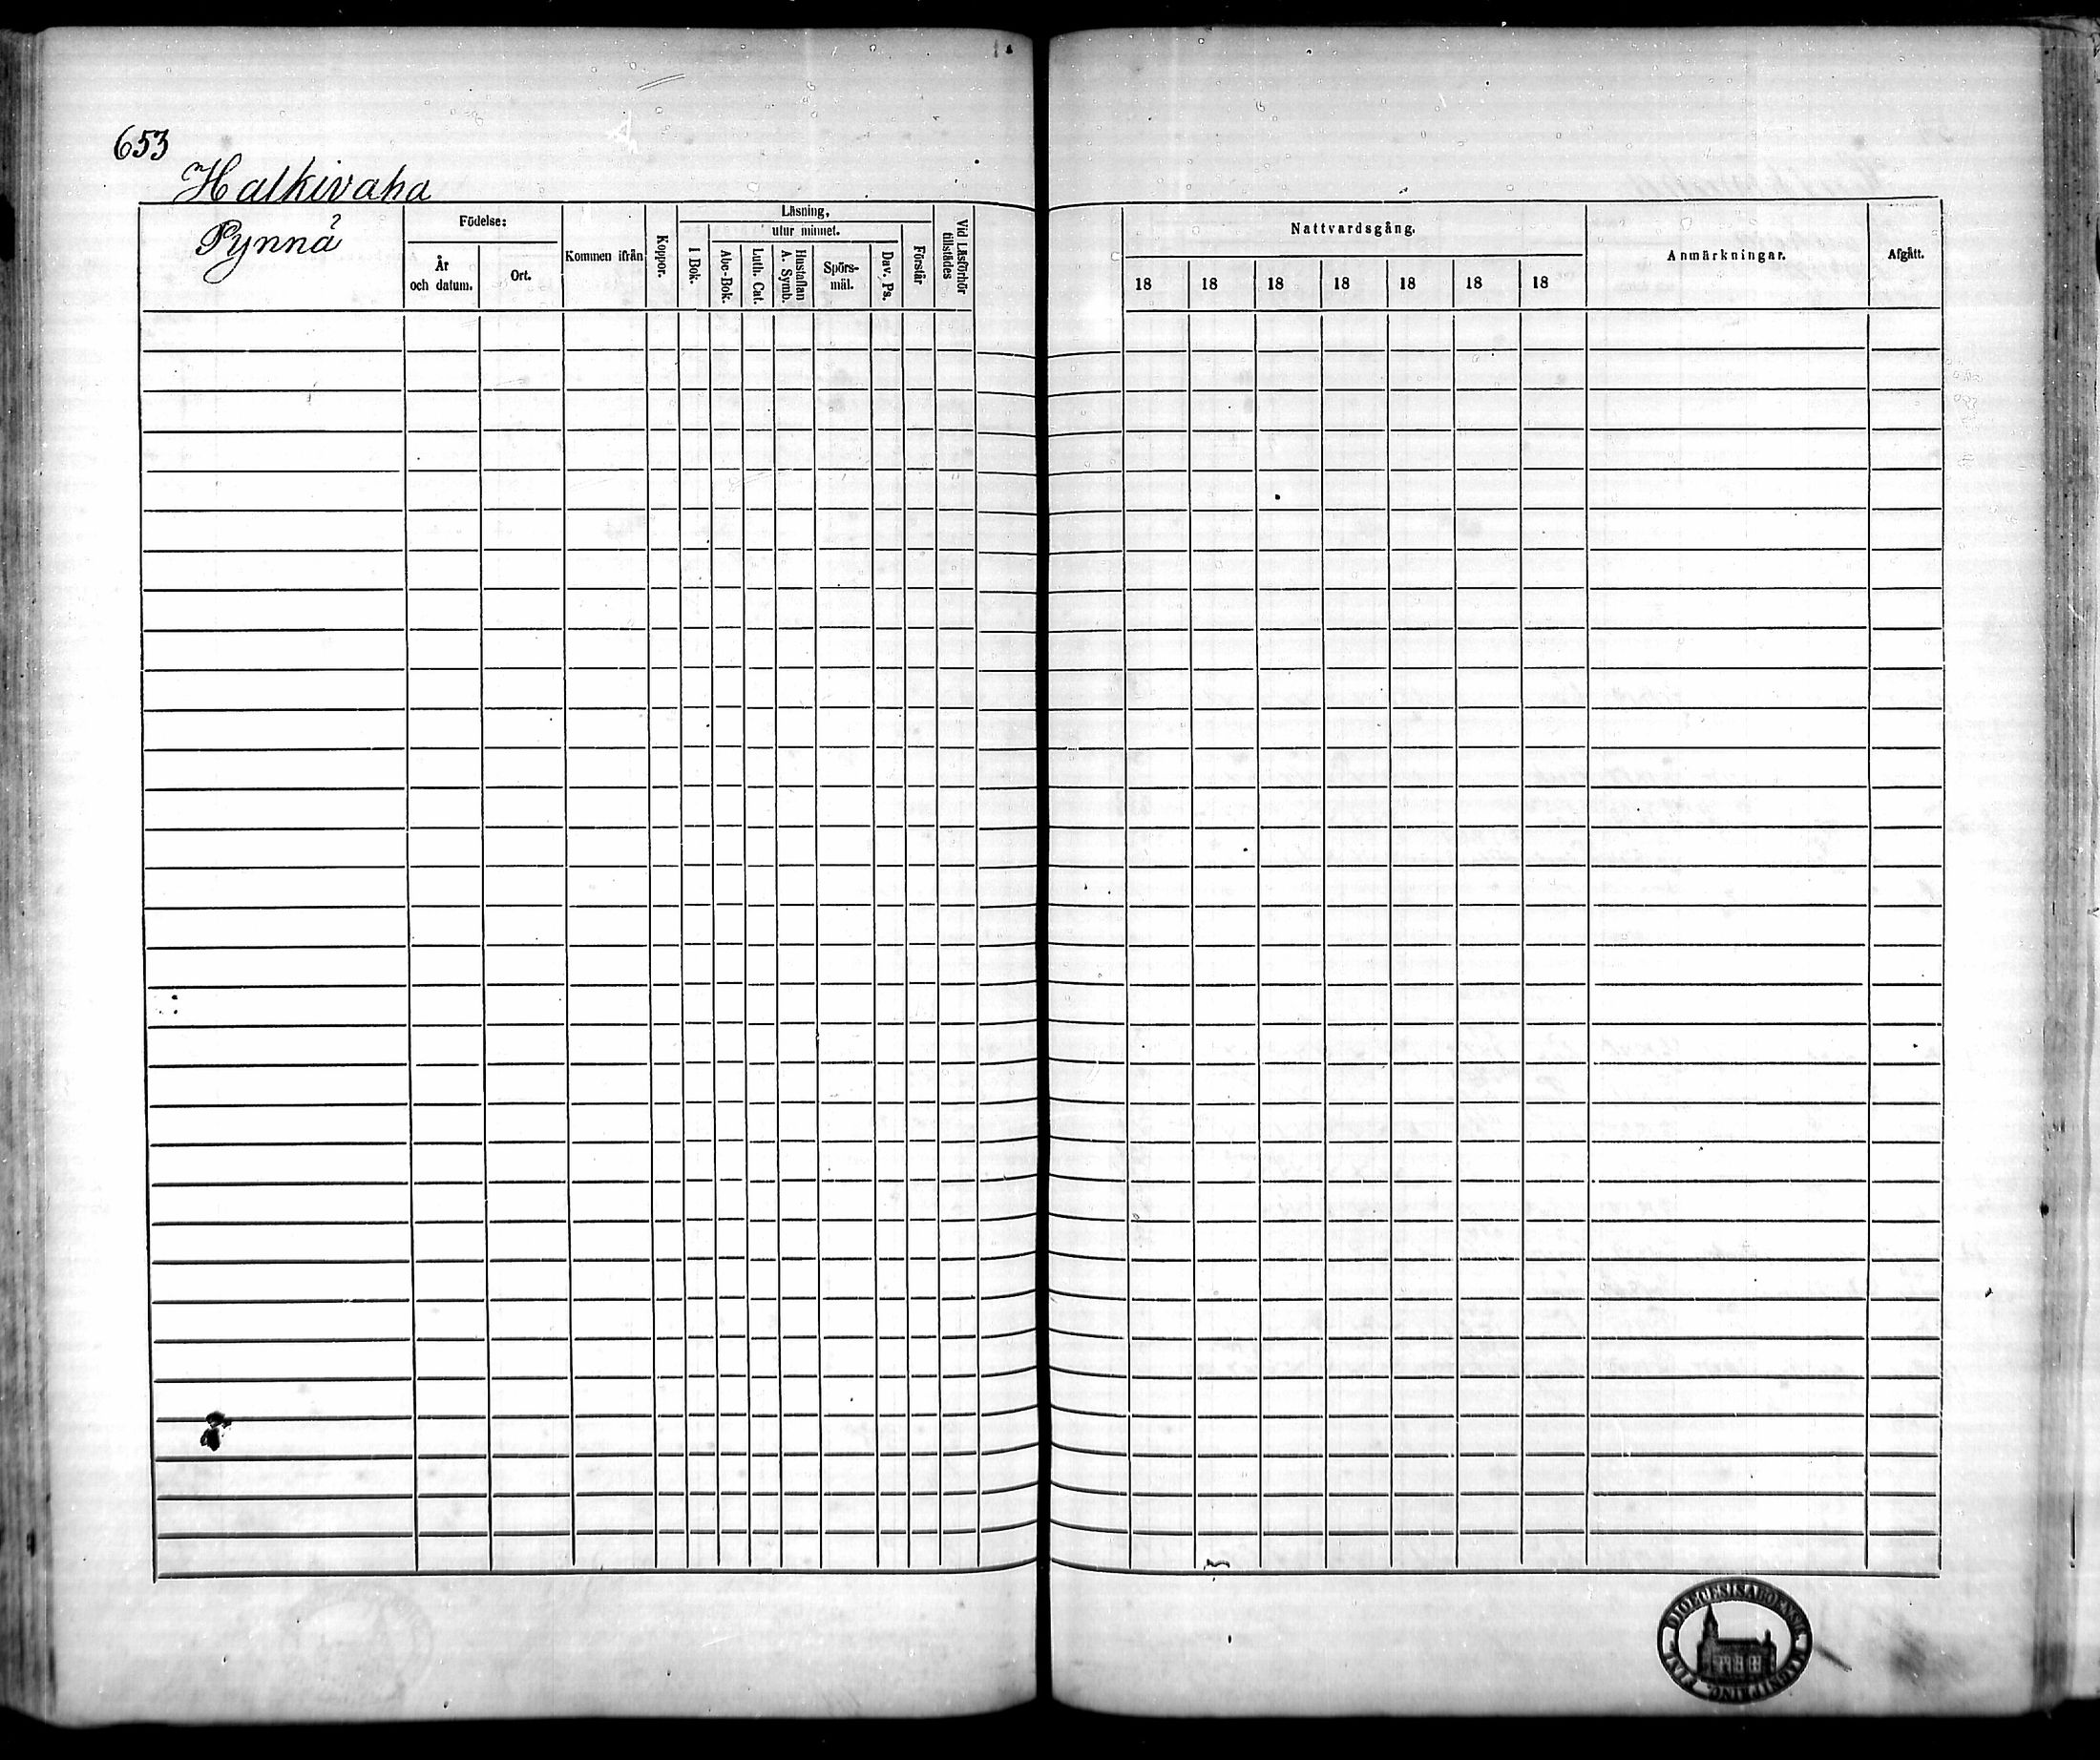 653
Halkivaha
Pynnä
Födelse:
År
och datum.
Ort.
Kommen ifrån
Koppor.
Läsning,
utur minnet.
I Bok.
Abc-Bok.
Luth. Cat.
Hustaflan
A. Symb.
Spörs-
mål.
Dav. Ps.
Förstår
Vid Läsförhör
tillstädes
Nattvardsgång.
18 18 18 18 18 18 18
Anmärkningar.
Afgått.